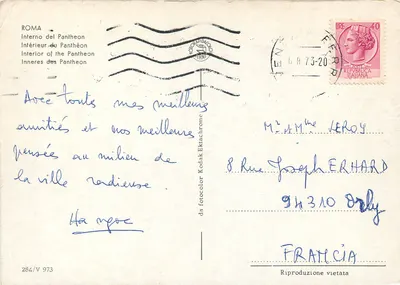 ROMA
Interno del Pantheon
Intérieur du Panthéon
Interior of the Pantheon
Inneres des Pantheon
40
Avec toutes mes meilleures
amitiés et nos meilleures
pensées au milieu de
la ville radieuse.
Ha ngoc
da fotocolor Kodak Ektachrome
Mr & Mme LEROY
8 Rue Joseph ERHARD
94310 Orly
FRANCIA
284/V 973
Riproduzione vietata